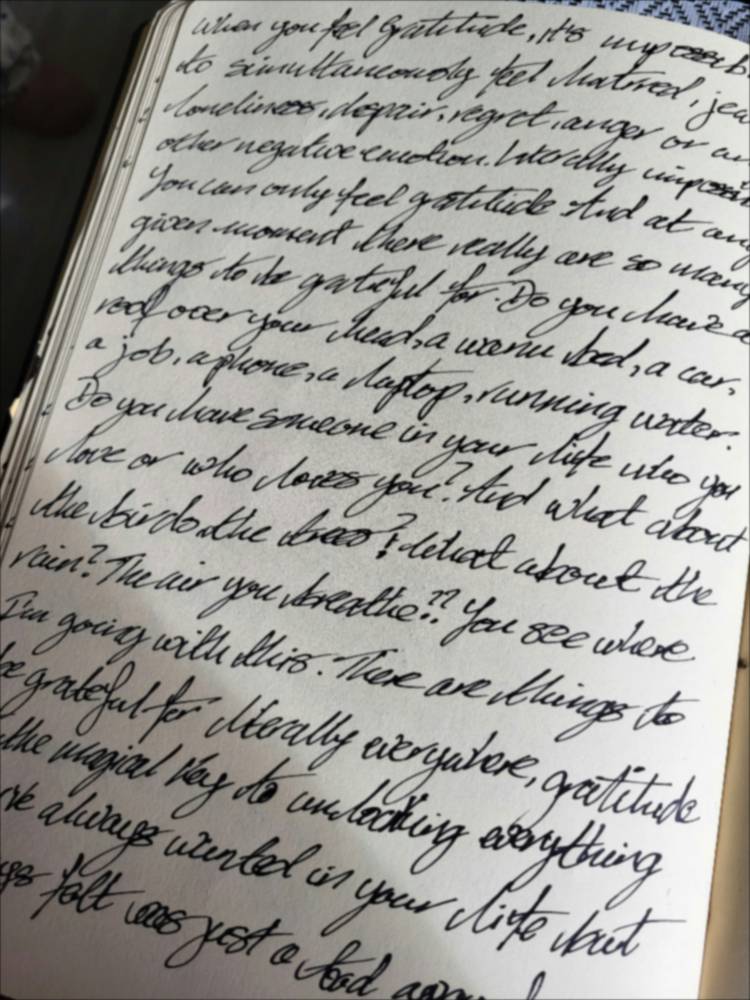 When you feel gratitude, it's impossib
to simultaneously feel hatred, jea
loneliness, despair, regret, anger or an
other negative emotion. Literally impossi
You can only feel gratitude And at any
given moment there really are so many
things to be grateful for. Do you have a
roof over your head, a warm bed, a car,
a job, a phone, a laptop, running water?
Do you have someone in your life who you
love or who loves you? And what about
the birds, the trees? What about the
rain? The air you breathe?? You see where
I'm going with this. There are things to
be grateful for literally everywhere, gratitude
the magical key to unlocking everything
've always wanted in your life but
ys felt was just a tad